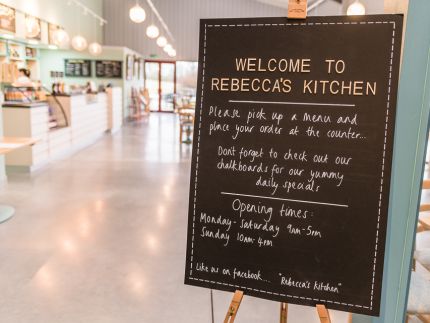 WELCOME TO
REBECCA'S KITCHEN
Please pick up a menu and
place your order at the counter...
Dont forget to check out our
chalkboards for our yummy
daily specials
Opening times:
Monday-Saturday 9am-5pm
Sunday 10am-4pm
Like us on facebook.... "Rebecca's Kitchen"